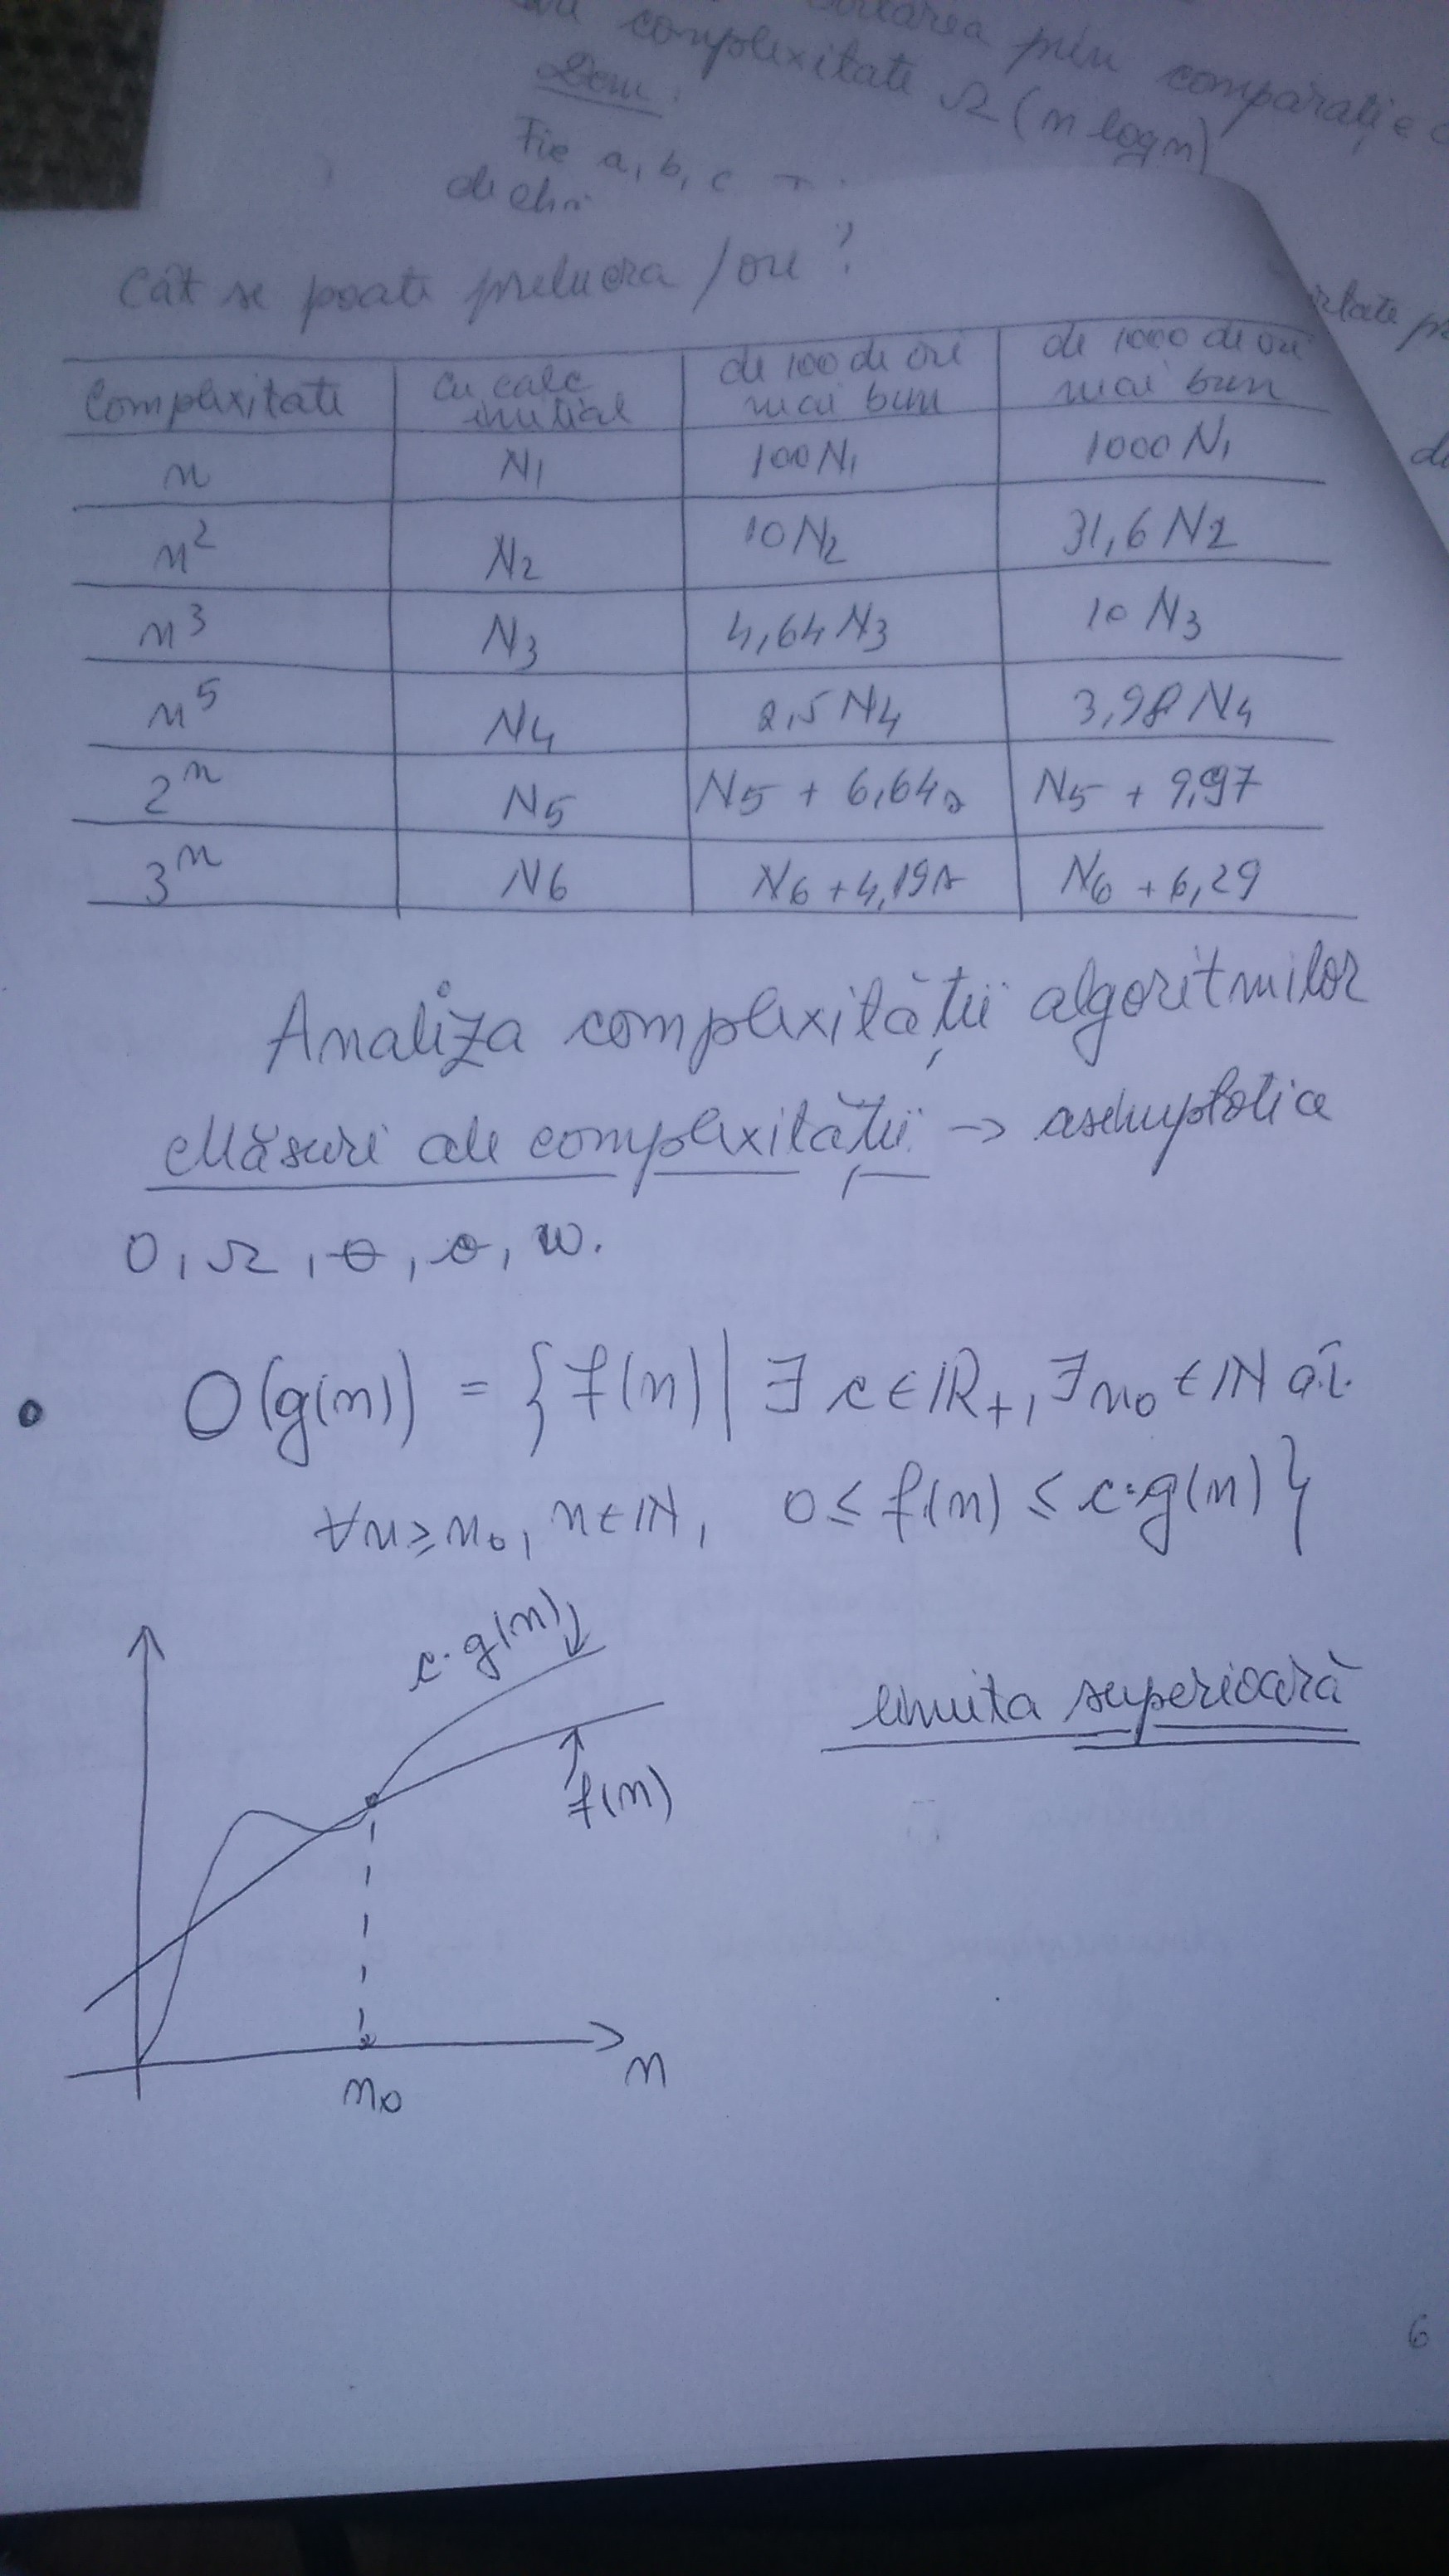 sortarea prin comparație
complexitate Ω(n log n)
Dem:
Fie a, b, c
Cât se poate prelucra / ore ?
Complexitate | cu calc inițial | de 100 de ori mai bun | de 1000 de ori mai bun
n | N1 | 100 N1 | 1000 N1
n² | N2 | 10 N2 | 31,6 N2
n³ | N3 | 4,64 N3 | 10 N3
n⁵ | N4 | 2,5 N4 | 3,98 N4
2ⁿ | N5 | N5 + 6,64 | N5 + 9,97
3ⁿ | N6 | N6 + 4,19 | N6 + 6,29
Analiza complexității algoritmilor
Măsuri ale complexității → asimptotice
O, Ω, θ, o, w.
• O(g(n)) = {f(n) | ∃ c ∈ ℝ+, ∃ n₀ ∈ ℕ a.î.
∀n ≥ n₀, n ∈ ℕ, 0 ≤ f(n) ≤ c·g(n)}
c·g(n)
limita superioară
f(n)
n
n₀
6